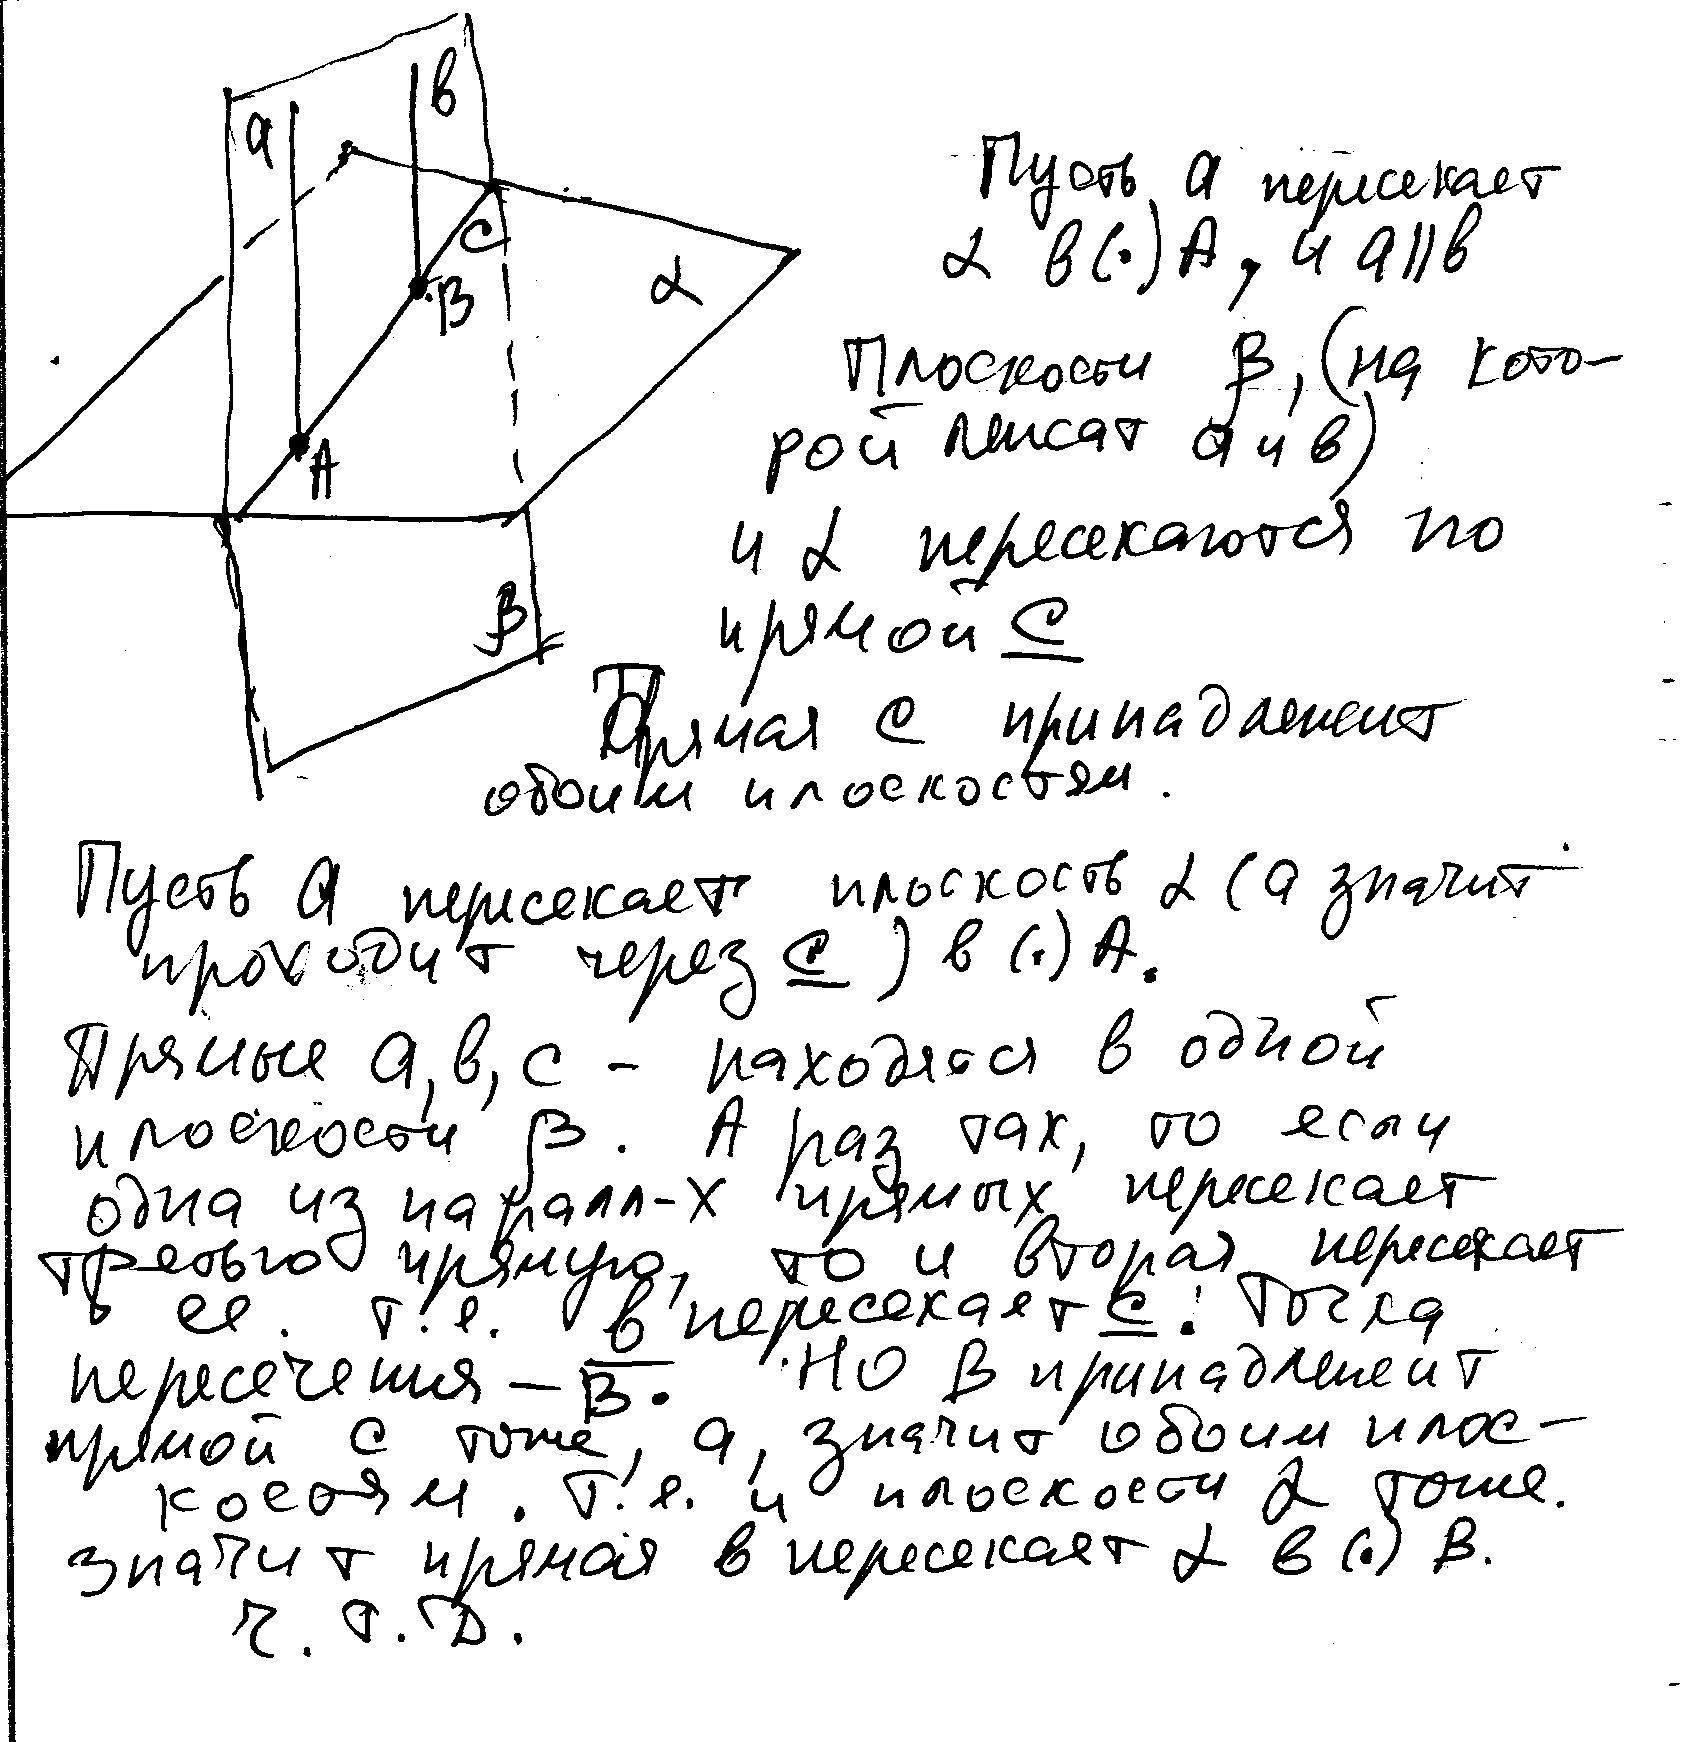 a
в
C
α
B
A
β
Пусть a пересекает
α в (.) A, и a || в
Плоскости β, (на кото-
рой лежат a и в)
и α пересекаются по
прямой C
Прямая C принадлежит
обоим плоскостям.
Пусть a пересекает плоскость α (а значит
проходит через C) в (.) A.
Прямые a, в, c - находятся в одной
плоскости β. А раз так, то если
одна из паралл-х прямых пересекает
третью прямую, то и вторая пересекает
ее. т.е. в пересекает C. Точка
пересечения - B. Но B принадлежит
прямой C тоже, а, значит обоим плос-
костям. т.е. и плоскости α тоже.
значит прямая в пересекает α в (.) B.
ч.т.д.